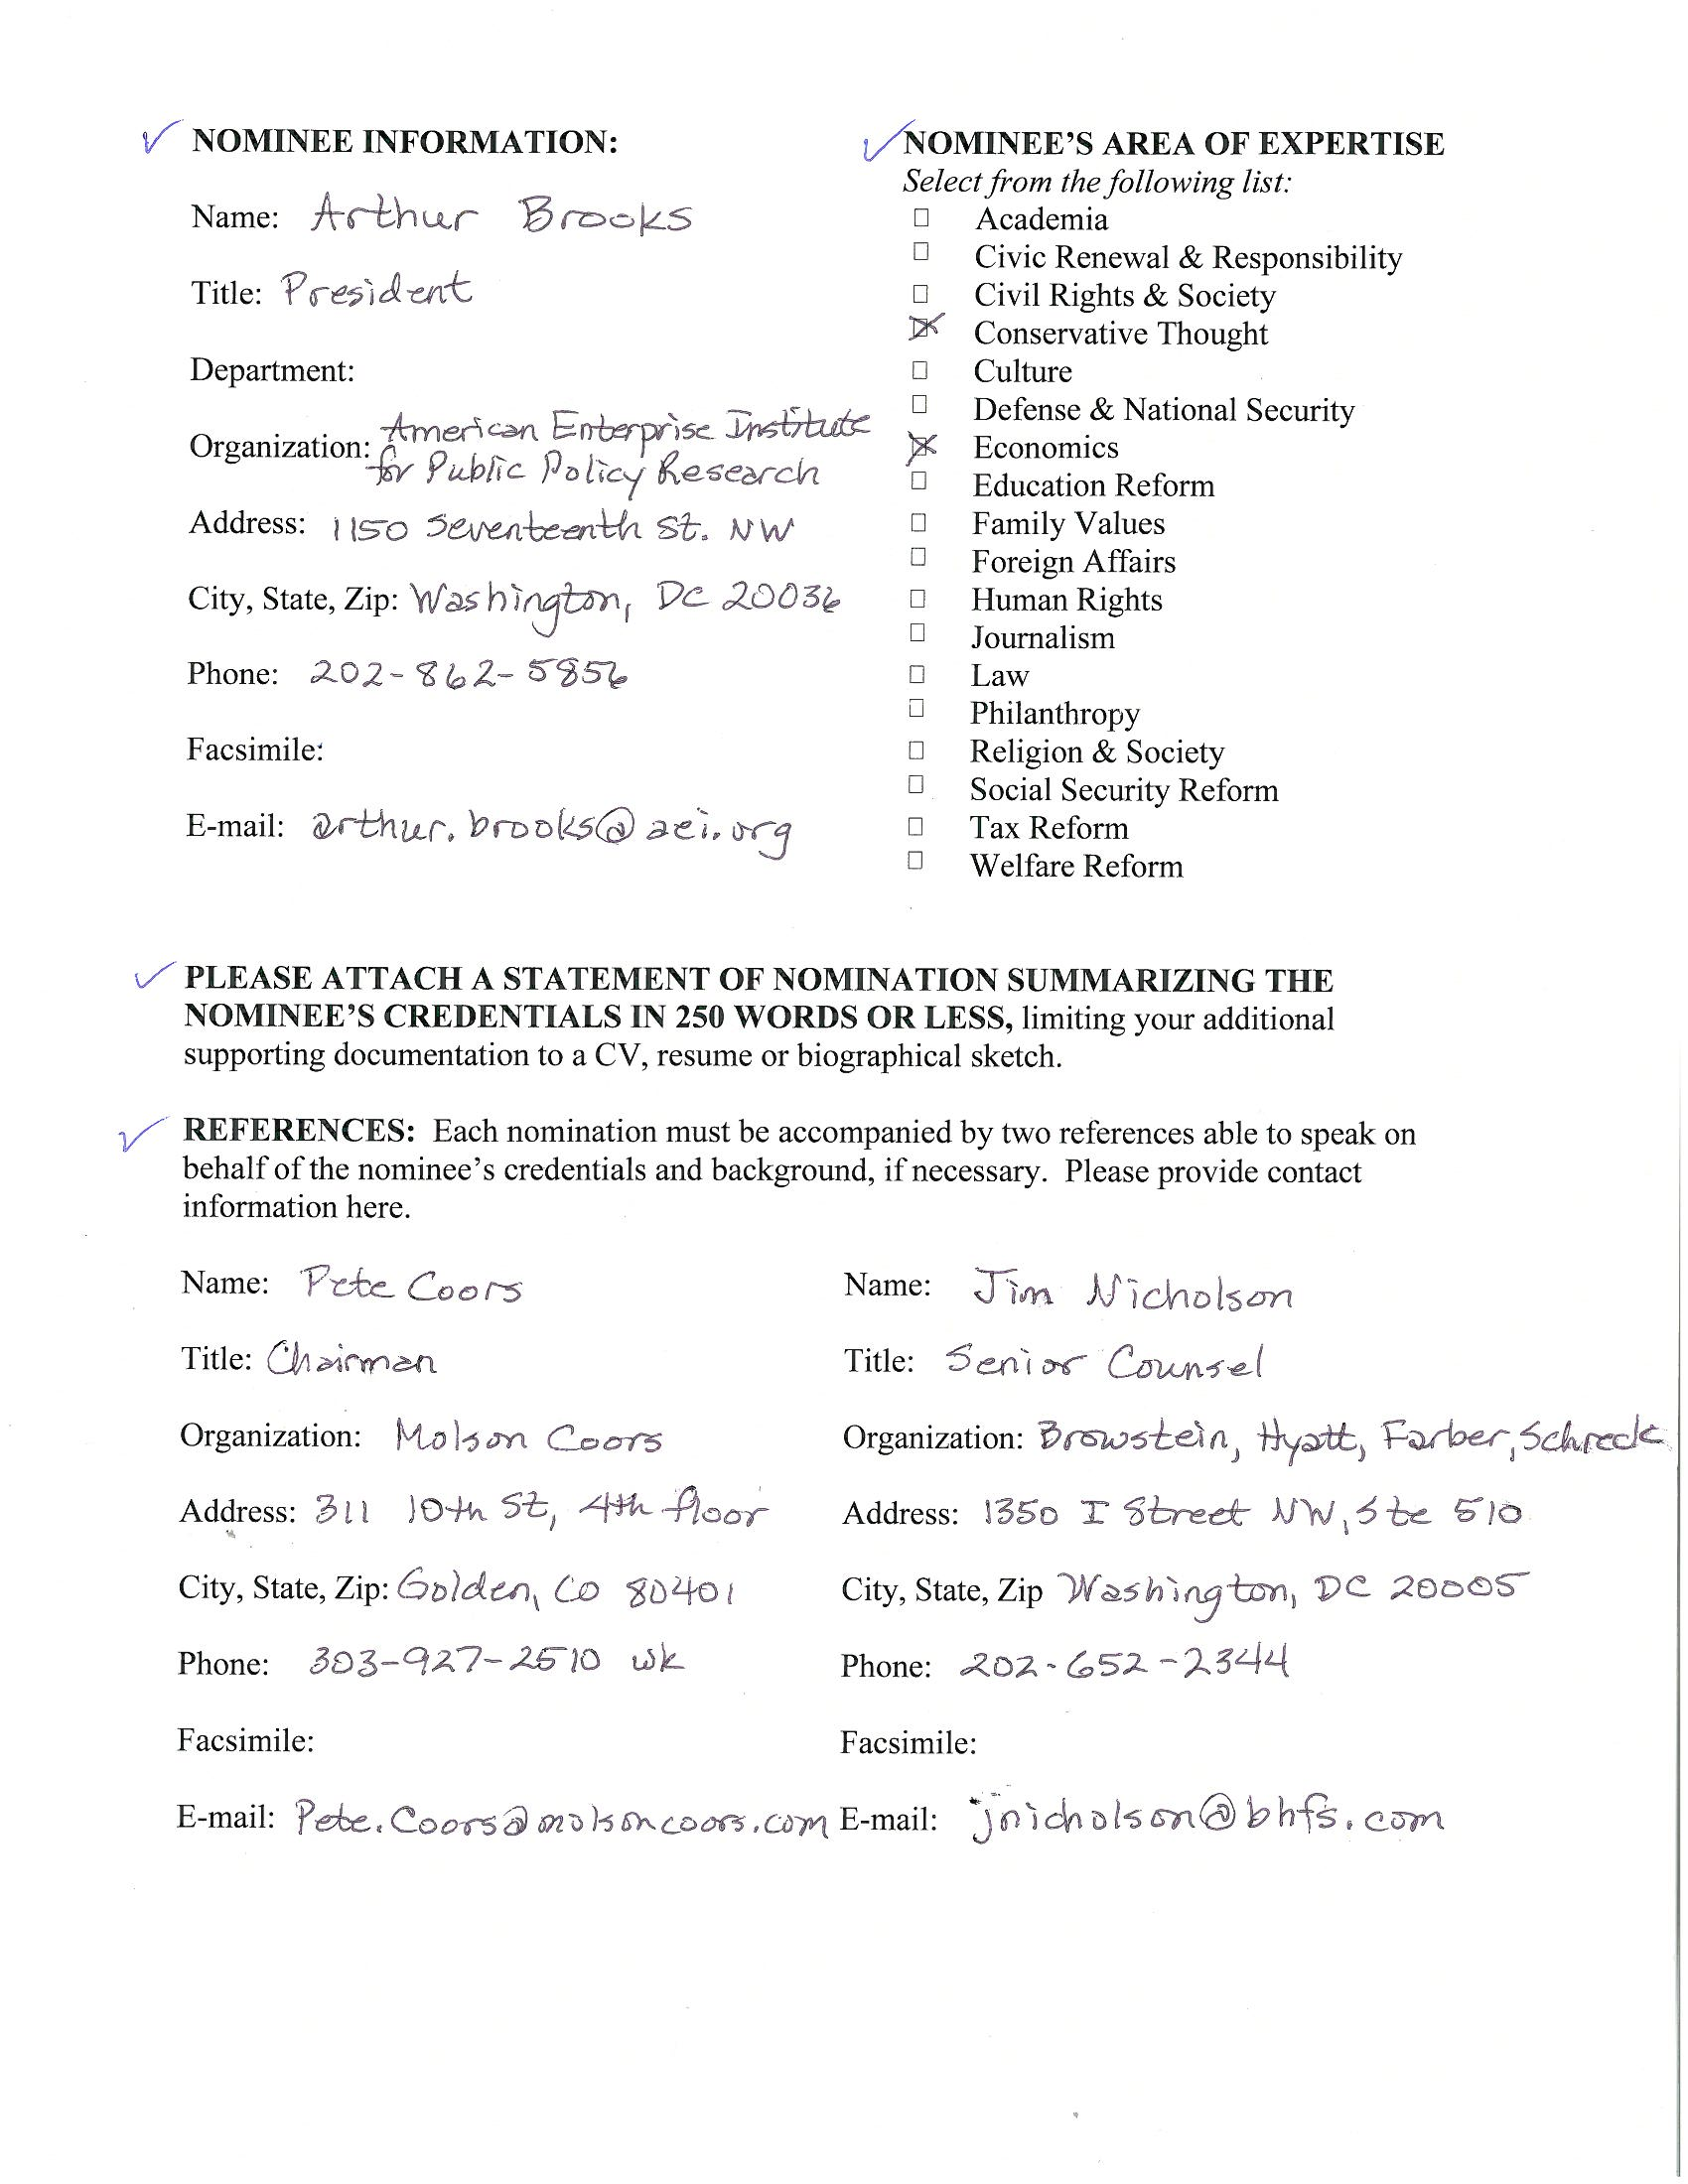 NOMINEE INFORMATION:
Name: Arthur Brooks
Title: President
Department:
Organization: American Enterprise Institute
for Public Policy Research
Address: 1150 Seventeenth St. NW
City, State, Zip: Washington, DC 20036
Phone: 202-862-5856
Facsimile:
E-mail: arthur.brooks@aei.org
NOMINEE'S AREA OF EXPERTISE
Select from the following list:
Academia
Civic Renewal & Responsibility
Civil Rights & Society
Conservative Thought
Culture
Defense & National Security
Economics
Education Reform
Family Values
Foreign Affairs
Human Rights
Journalism
Law
Philanthropy
Religion & Society
Social Security Reform
Tax Reform
Welfare Reform
PLEASE ATTACH A STATEMENT OF NOMINATION SUMMARIZING THE
NOMINEE'S CREDENTIALS IN 250 WORDS OR LESS, limiting your additional
supporting documentation to a CV, resume or biographical sketch.
REFERENCES: Each nomination must be accompanied by two references able to speak on
behalf of the nominee's credentials and background, if necessary. Please provide contact
information here.
Name: Pete Coors
Title: Chairman
Organization: Molson Coors
Address: 311 10th St, 4th floor
City, State, Zip: Golden, CO 80401
Phone: 303-927-2510 wk
Facsimile:
E-mail: Pete.Coors@molsoncoors.com
Name: Jim Nicholson
Title: Senior Counsel
Organization: Browstein, Hyatt, Farber, Schreck
Address: 1350 I Street NW, Ste 510
City, State, Zip Washington, DC 20005
Phone: 202-652-2344
Facsimile:
E-mail: jnicholson@bhfs.com